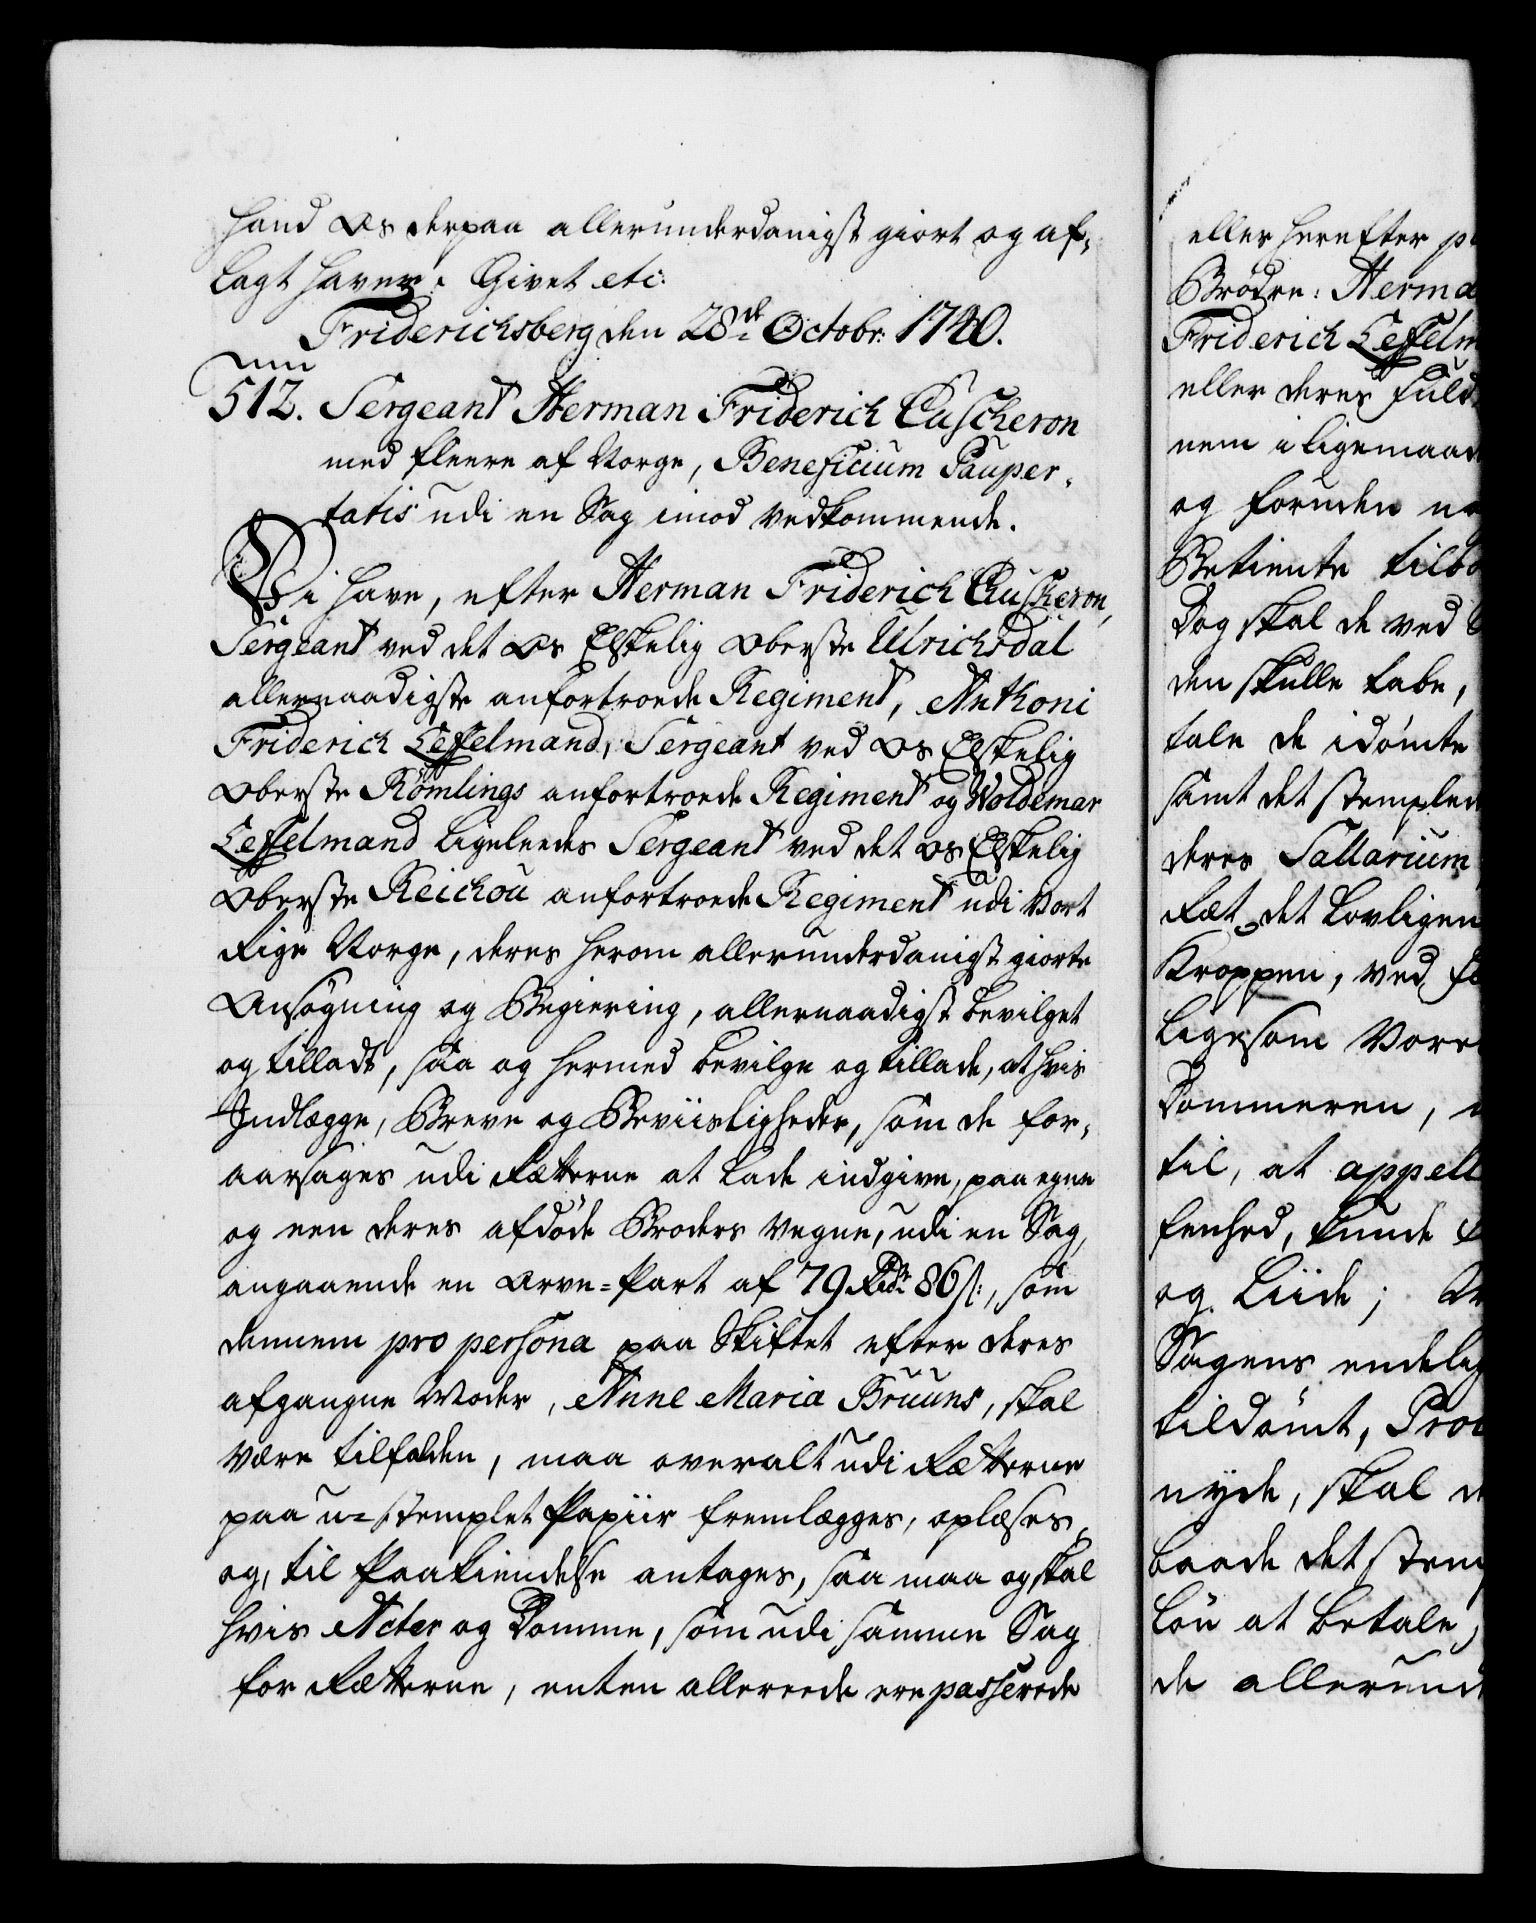 hand Os derpaa allerunderdanigst giort og af-
lagt haver. Givet etc:
Friderichsberg den 28de Octobr: 1740.
512. Sergeant Herman Friderich Cuscheron
med fleere af Norge, Beneficium Pauper-
tatis udi en Sag imod Vedkommende.
Vi have, efter Herman Friderich Cuscheron,
Sergeant ved det Os Elskelig Oberste Ulrichsdal
allernaadigste anfortroede Regiment, Anthoni
Friderich Leffelmand, Sergeant ved Os Elskelig
Oberste Römlings anfortroede Regiment og Woldemar
Leffelmand ligeleedes Sergeant ved det Os Elskelig
Oberste Reichou anfortroede Regiment udi Vort
Rige Norge, deres herom allerunderdanigst giorte
Ansøgning og Begiering, allernaadigst bevilget
og tilladt, saa og hermed bevilge og tillade, at hvis
Indlægge, Breve og Beviisligheder, som de for-
aarsages udi Rætterne at lade indgive, paa egne
og een deres afdøde Broders Vegne, udi en Sag,
angaaende en Arve-Part af 79 Rdr 86 s:, som
dennem pro persona paa Skiftet efter deres
afgangne Moder, Anne Maria Bruuns, skal
være tilfalden, maa overalt udi Rætterne
paa u-stemplet Papiir fremlægges, oplæses,
og, til Paakiendelse antages, saa maa og skal
hvis Acter og Domme, som udi samme Sag
for Rætterne, enten allereede ere passerede
eller herefter
Brødre: Herma
Friderich Leffelm
eller deres Fuld
nem i ligemaad
og foruden
Betiente tilbø
Dog skal de ved
den skulle tabe,
tale de idømte
samt det stemplede
deres Sallarium
Ræt, det Lovligen
Kroppen, ved
ligesom Vore
Dommeren,
til, at appell
fenhed, kunde
og Liide;
Sagens endelig
tildømt, Pro
nyde, skal
baade det stem
løn at betale,
de allerund